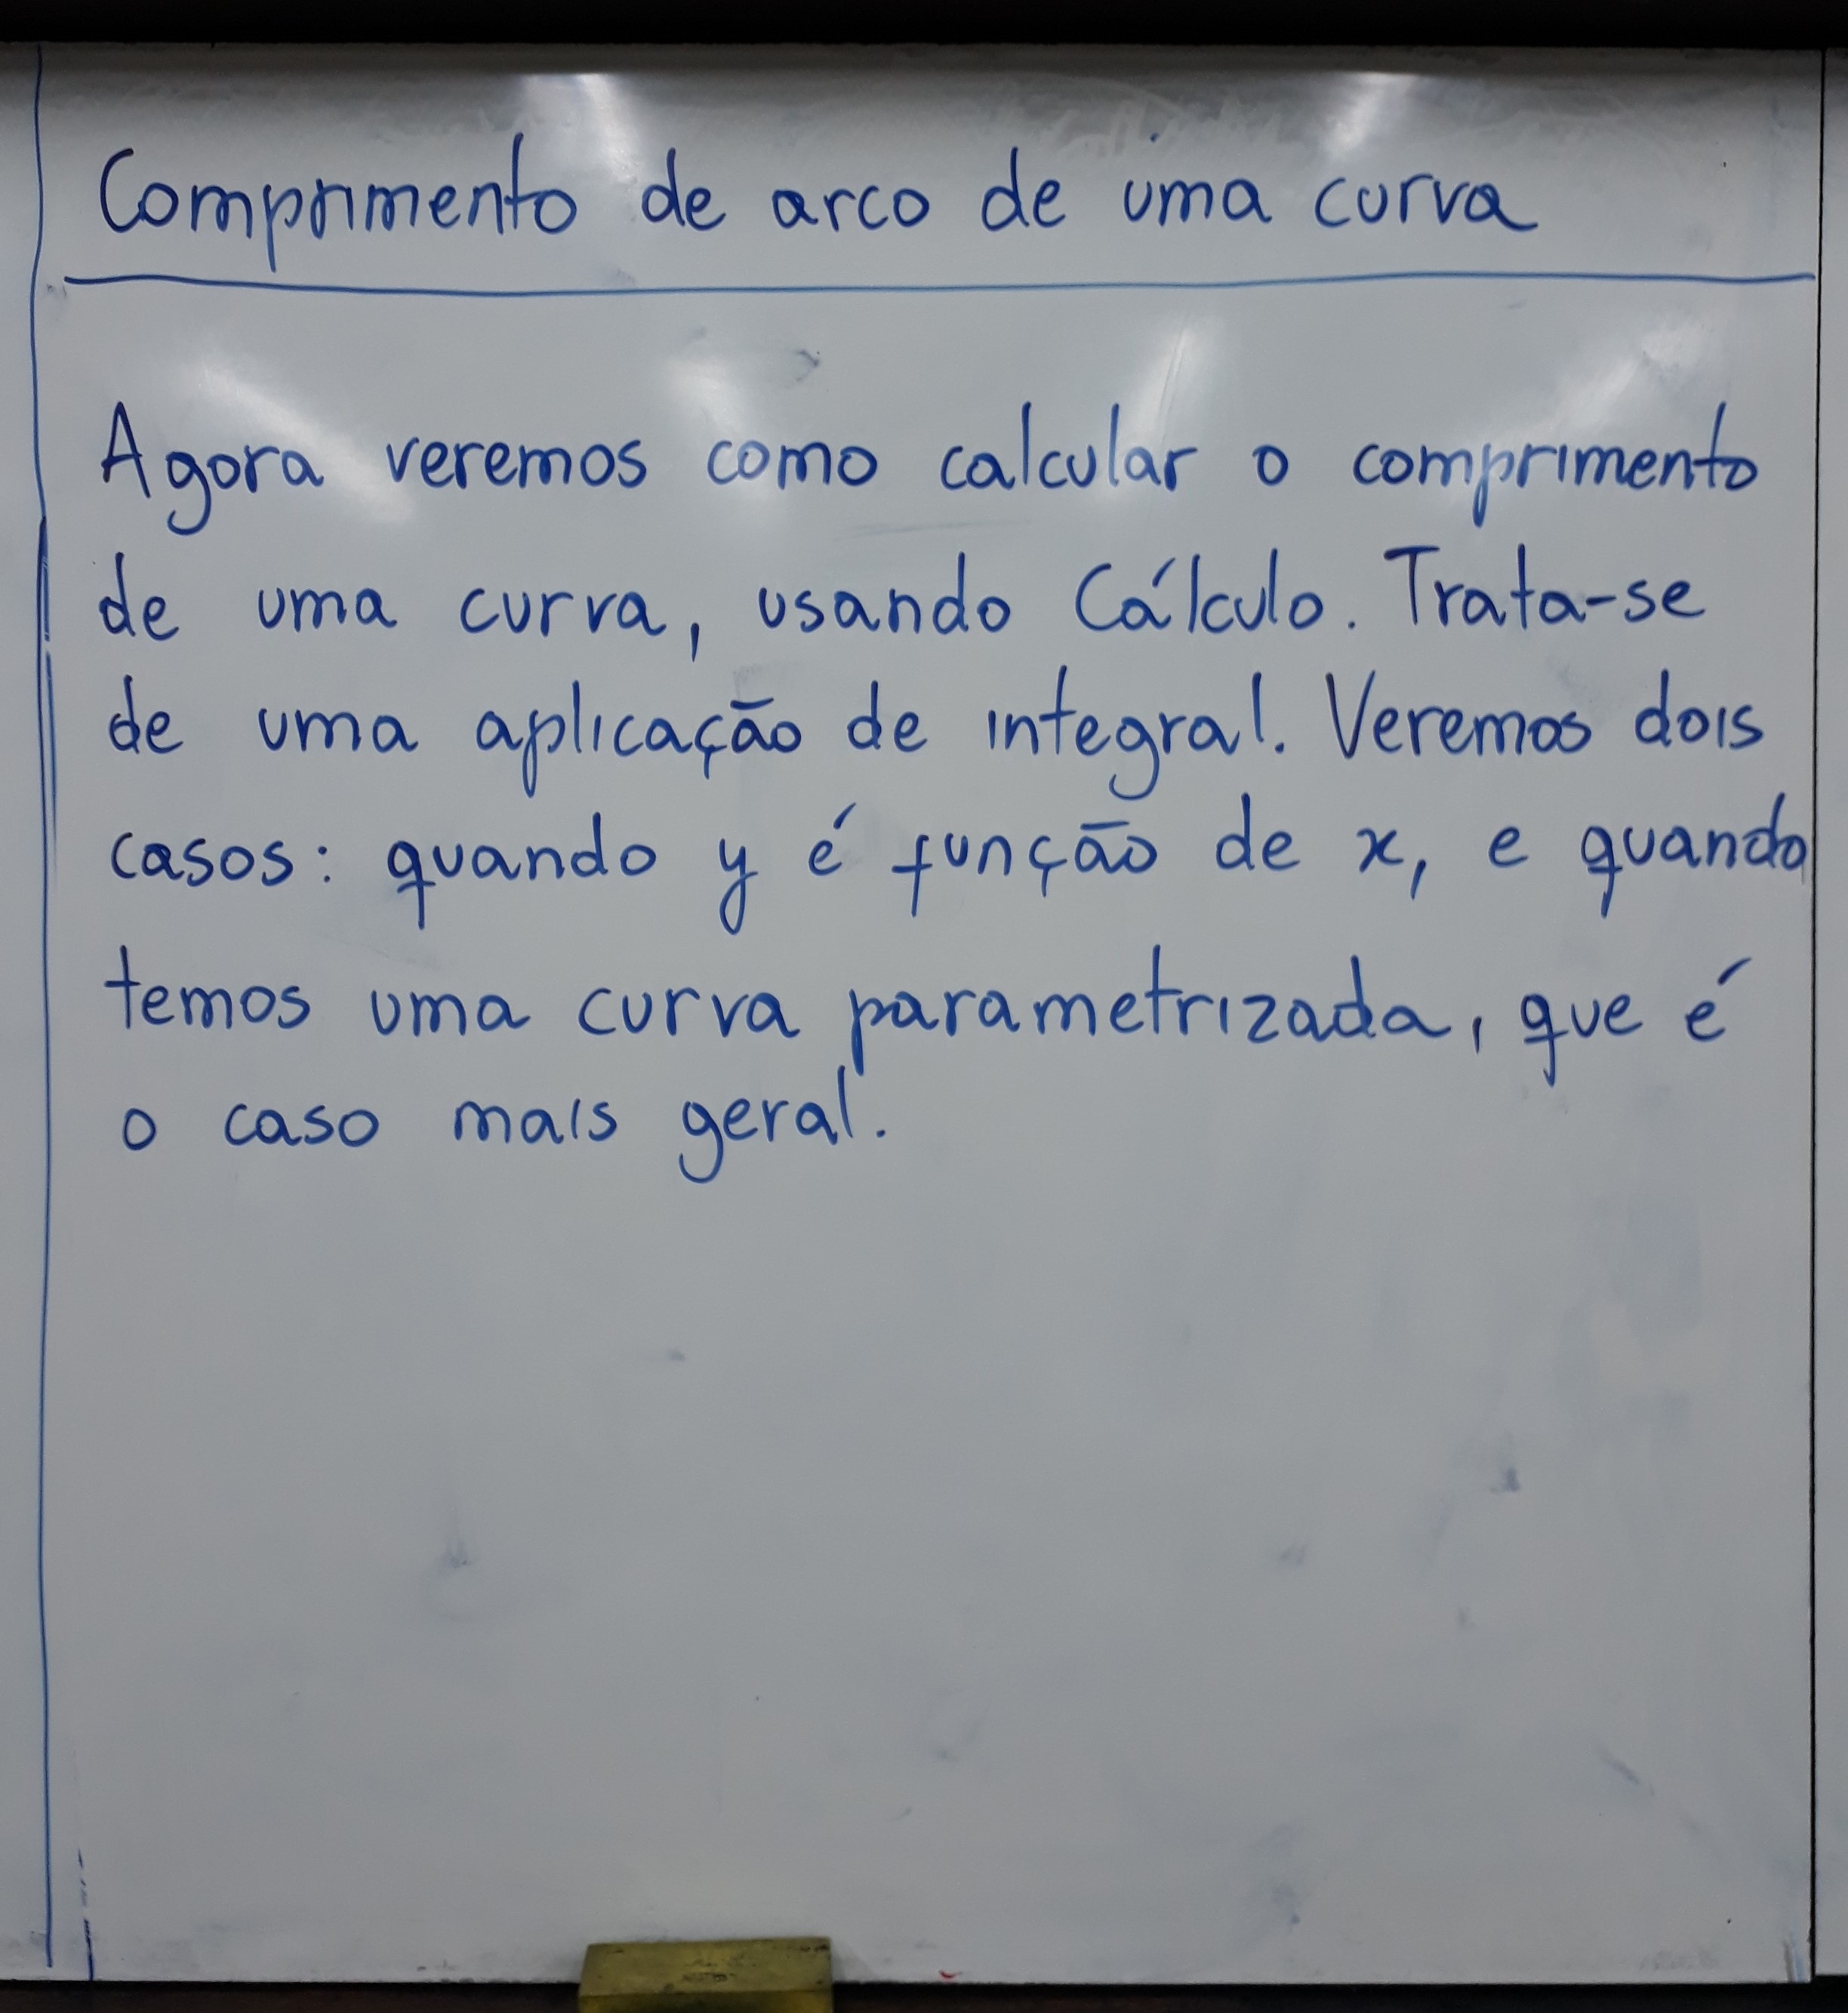 Comprimento de arco de uma curva
Agora veremos como calcular o comprimento
de uma curva, usando Cálculo. Trata-se
de uma aplicação de integral. Veremos dois
casos: quando y é função de x, e quando
temos uma curva parametrizada, que é
o caso mais geral.